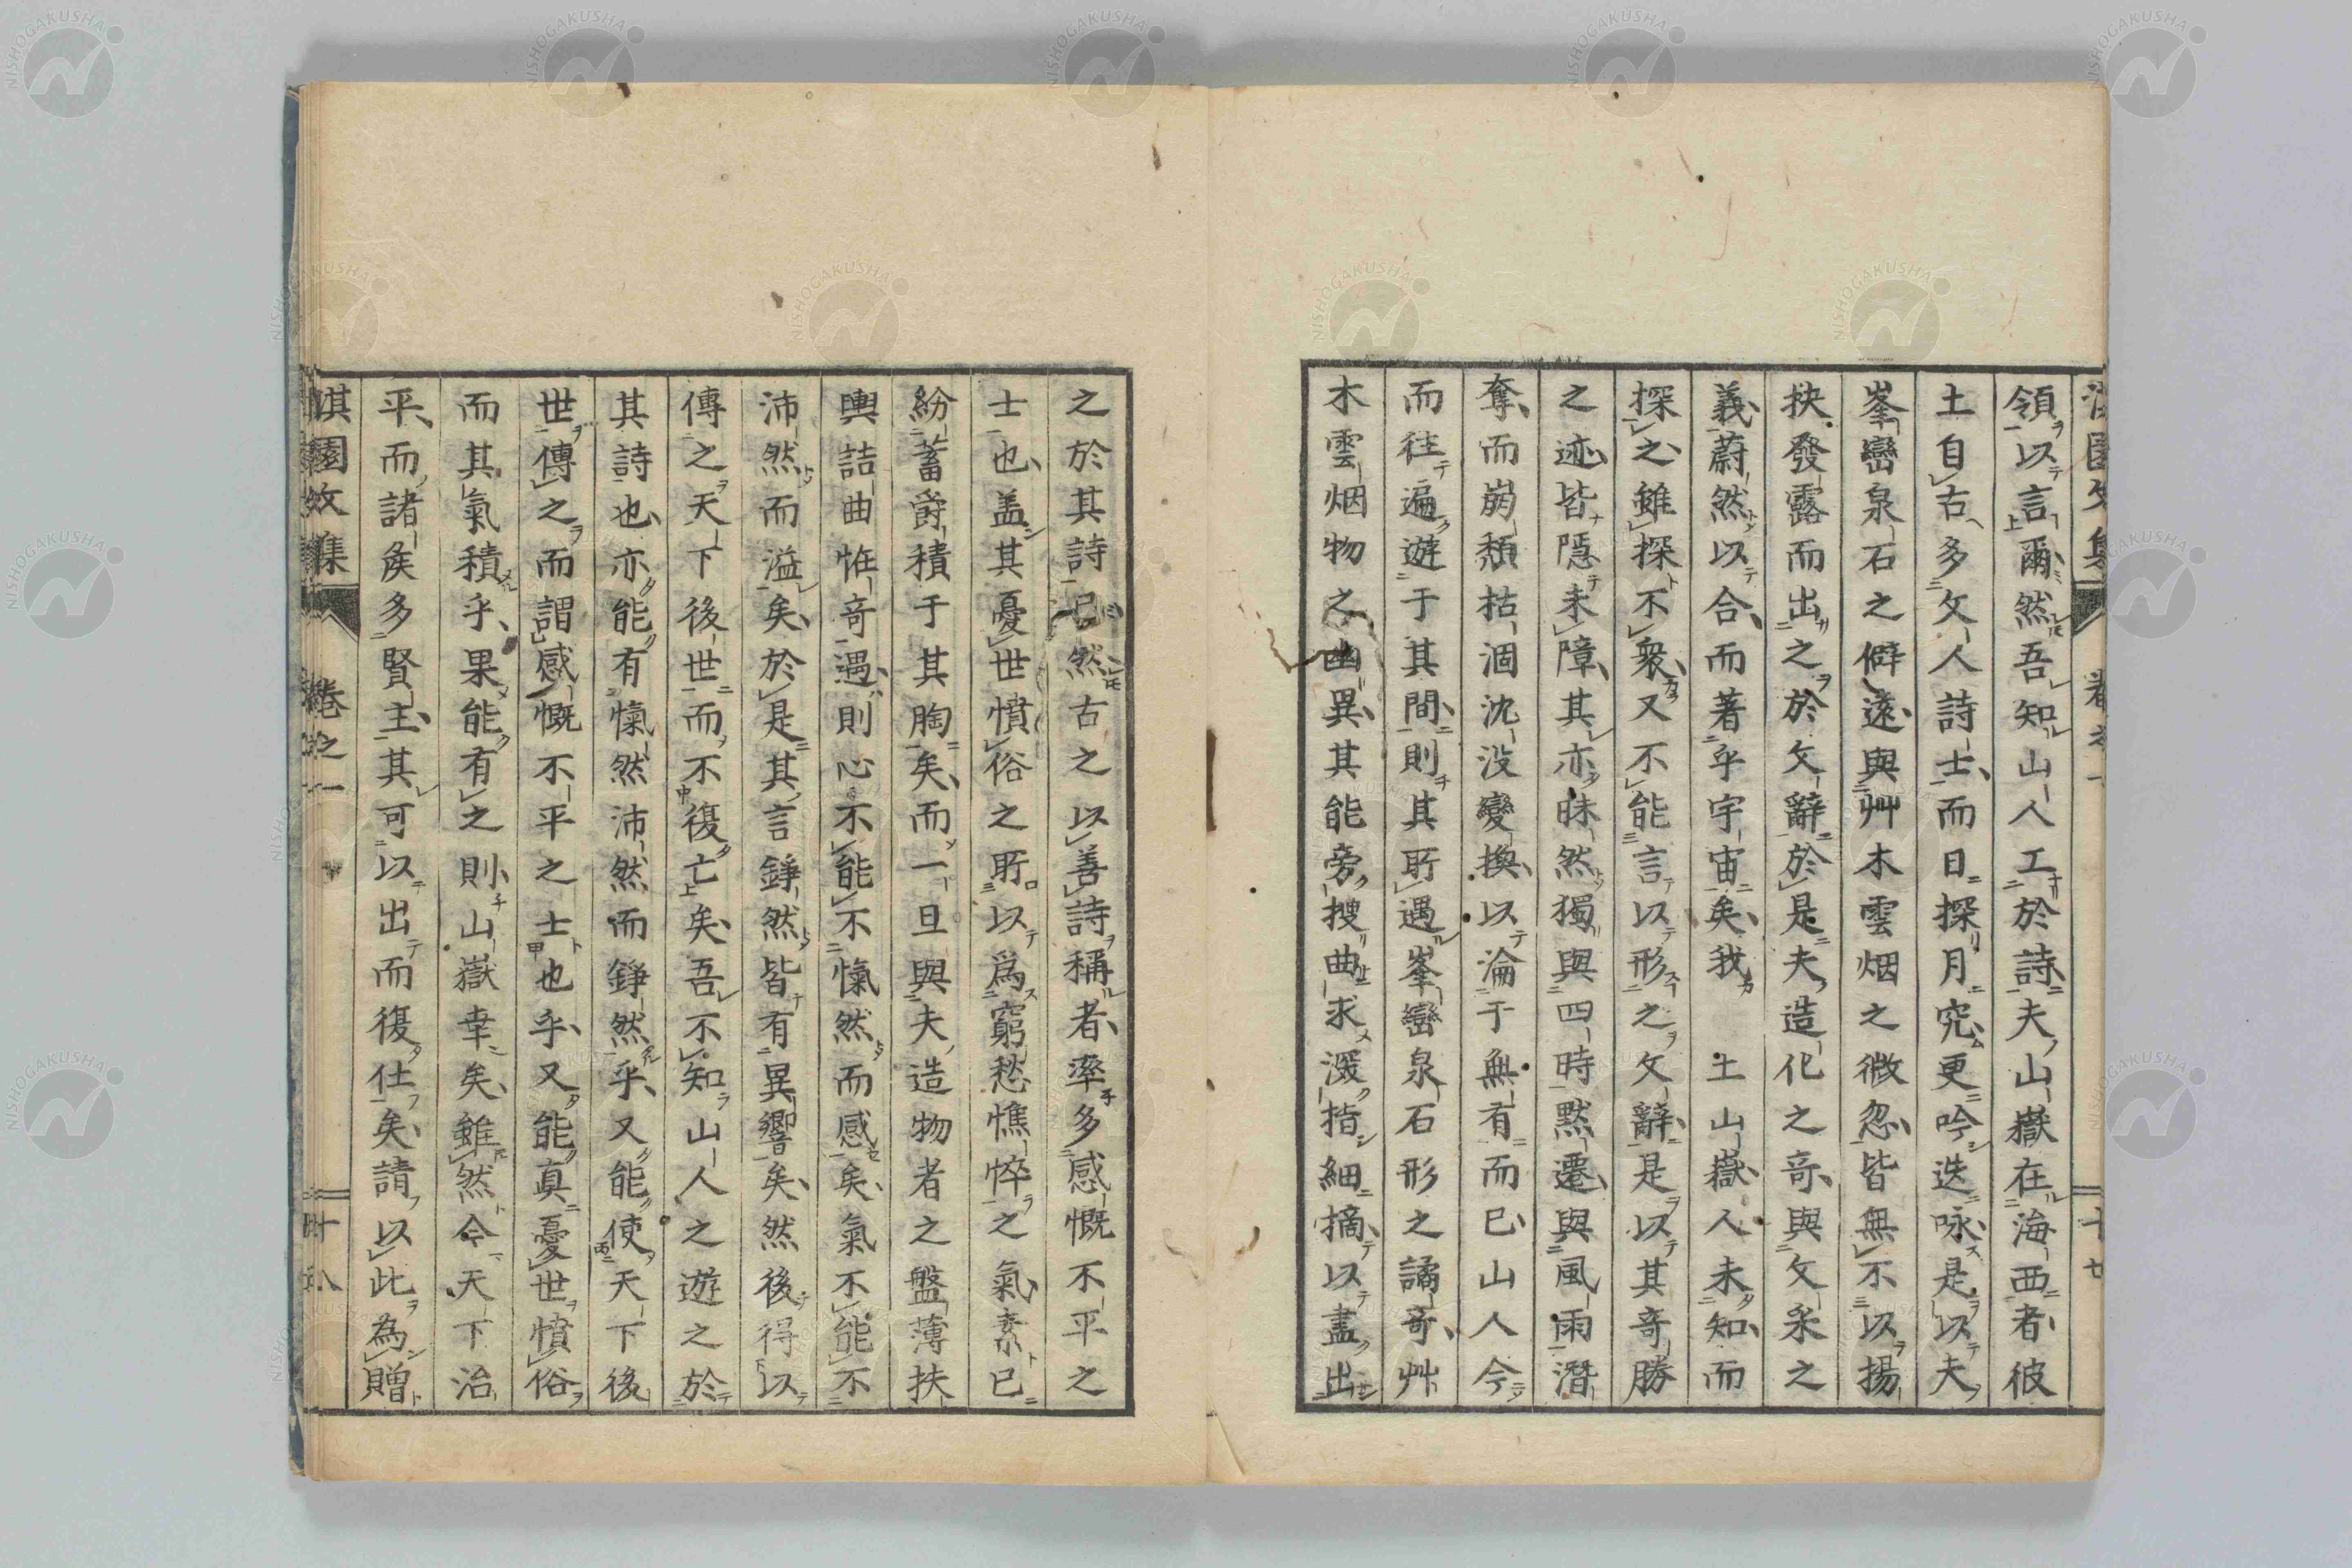 領以言爾然吾知山人工於詩夫山嶽在海西者彼
土自古多文人詩士而日探月究更吟迭咏是以夫
峯巒泉石之僻遠與艸木雲烟之微忽皆無不以揚
抉發露而出之於文辭於是夫造化之奇與文釆之
義蔚然以合而著乎宇宙矣我 土山嶽人未知而
探之雖探不衆又不能言以形之文辭是以其奇勝
之迹皆隱未障其亦昧然獨與四時黙遷與風雨潛
奪而崩頽枯涸沈没變換以淪于無有而已山人今
而往遍遊于其間則其所遇峯巒泉石形之譎奇艸
木雲烟物之幽異其能旁搜曲求深指細摘以盡出
之於其詩已然古之以善詩稱者率多感慨不平之
士也盖其憂世憤俗之所以爲窮愁憔悴之氣素已
紛蓄爵積于其胸矣而一旦與夫造物者之盤薄扶
輿詰曲恠奇遇則心不能不愾然而感矣氣不能不
沛然而溢矣於是其言錚然皆有異響矣然後得以
傳之天下後世而不復亡矣吾不知山人之遊之於
其詩也亦能有愾然沛然而錚然乎又能使天下後
世傳之而謂感慨不平之士也乎又能真憂世憤俗
而其氣積乎果能有之則山嶽幸矣雖然今天下治
平而諸侯多賢主其可以出而復仕矣請以此為贈
淇園文集 卷之一 十八